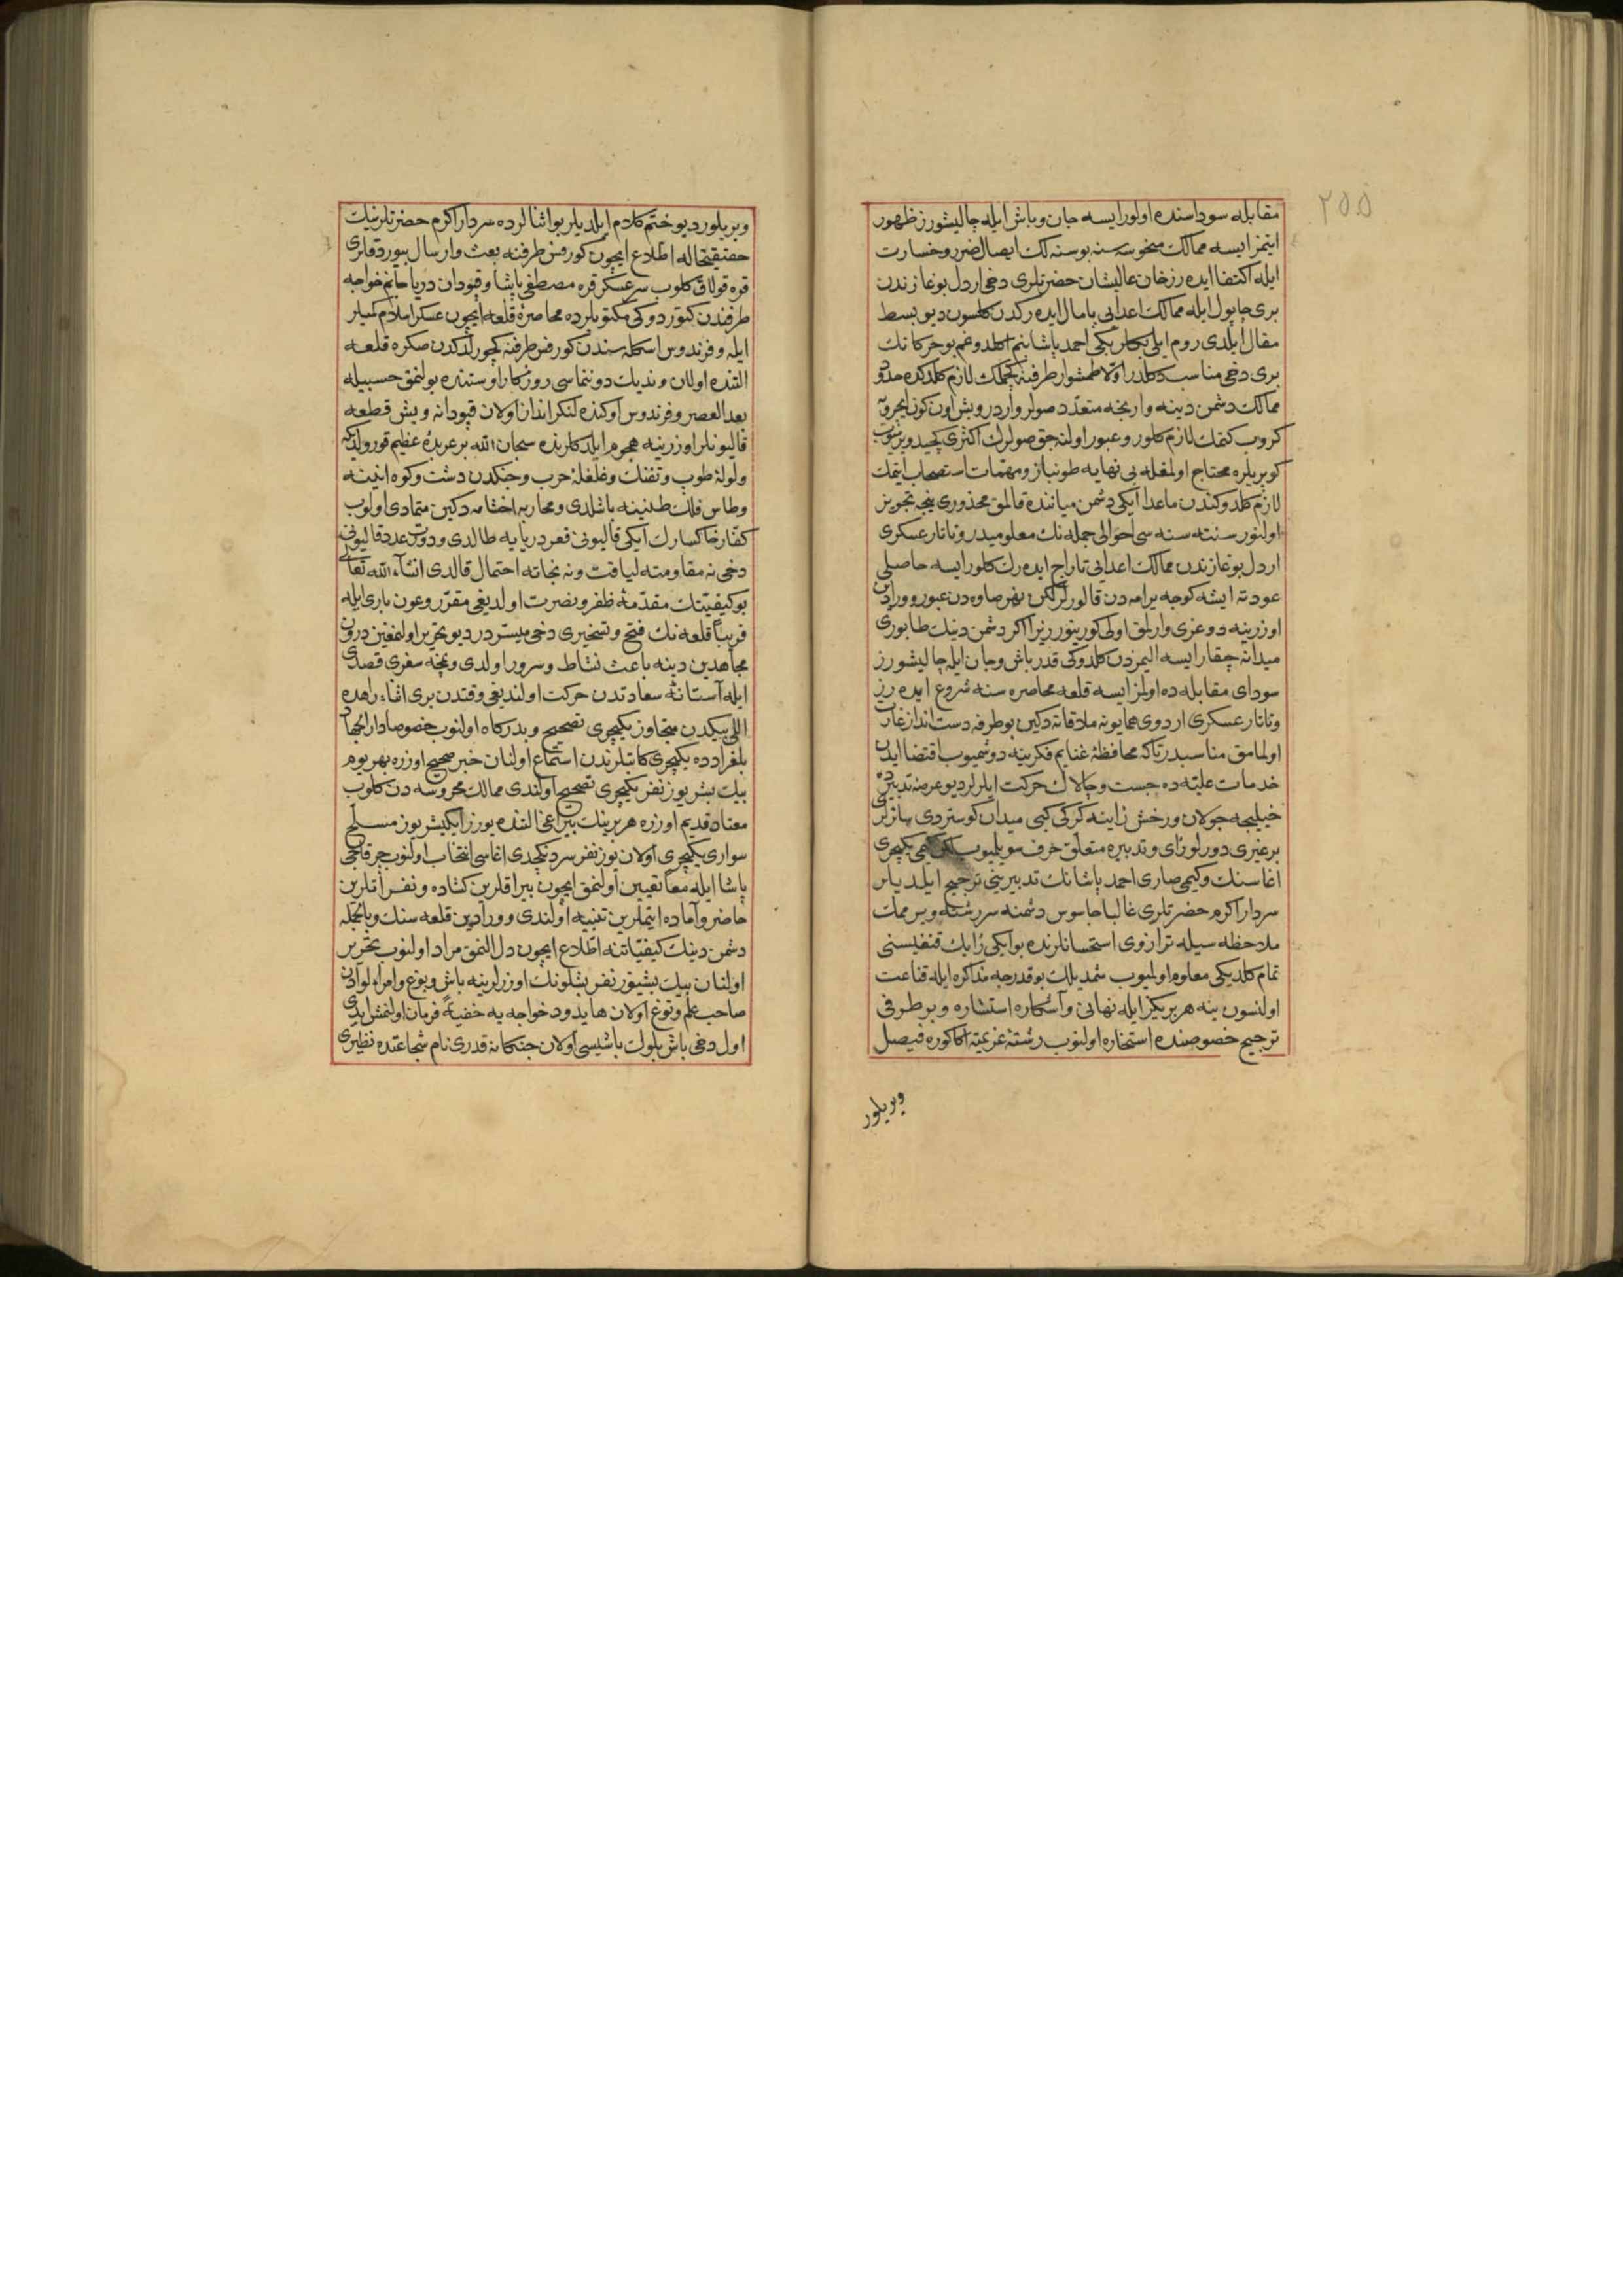 ٢٥٥
مقابله سوداسنده اولور ايسه جان و باش ايله چاليشورز ظهور
ايتمز ايسه ممالك منحوسه سنه بوسنه لك ايصال ضرر و خسارت
ايله اكتفا ايده رز خان عاليشان حضرتلرى دخى اردل بوغازندن
برى چاپول ايله ممالك اعدايى پامال ايده رك كلسون ديو بسط
مقال ايلدى روم ايلى بكلربكى احمد پاشا بنم اكلدوغم بو حركاتك
برى دخى مناسب دكلدر اولا طمشوار طرفنه كچملك لازم كلدكده
ممالك دشمن دينه وارنجه متعدد صولر واردر و بش اون كون ايچرويه
كروب كتمك لازم كلور و عبور اولنه جق صولرك اكثرى
كوپريلره محتاج اولمغله بى نهايه طونباز و مهمات استصحاب ايتمك
لازم كلدوكندن ماعدا ايكى دشمن مياننده قالمق محذورى نيجه تجويز
اولنور سنته سنه سى احوالى جمله نك معلوميدر و تاتار عسكرى
اردل بوغازندن ممالك اعدايى تاراج ايده رك كلور ايسه حاصلى
عودته ايشه كوجه يرامه دن قالورلر لكن نهر صاوه دن عبور و ورادين
اوزرينه دوغرى وارلمق اولى كورينور زيرا اكر دشمن دينك طابورى
ميدانه چقار ايسه اليمزدن كلدوكى قدر باش و جان ايله چاليشورز
سوداى مقابله ده اولمز ايسه قلعه محاصره سنه شروع ايده رز
و تاتار عسكرى اردوى همايونه ملاقاته دكين بو طرفه دست انداز غارت
اولمامق مناسبدر تاكه محافظۀ غنايم فكرينه دوشميوب اقتضا ايدن
خدمات عليه ده جست و چالاك حركت ايلرلر ديو عرصۀ تدبيرده
خيليجه جولان و رخش زاينه كركى كبى ميدان كوستردى سائرلر
برغيرى دورلو رأى و تدبيره متعلق حرف سويليوب يكيچرى
اغاسنك وكيمى صارى احمد پاشانك تدبيرينى ترجيح ايلديلر
سردار اكرم حضرتلرى غالبا جاسوس دشمنه سررشته ويرممك
ملاحظه سيله ترازوى استحسانلرنده بو ايكى رأيك قنغيسنى
تمام كلديكى معلوم اولميوب شمديلك بو قدرجه مذاكره ايله قناعت
اولنسون ينه هر بريكز ايله نهانى و آشكاره استشاره و بر طرفى
ترجيح خصوصنده استخاره اولنوب رشتۀ عزيمته اكا كوره فيصل
ويريلور
ويريلور ديو ختم كلام ايلديلر بو اثنالرده سردار اكرم حضرتلرينك
حقيقتحاله اطلاع ايچون كورفس طرفنه بعث و ارسال بيوردقلرى
قره قولاق كلوب سرعسكر قره مصطفى پاشا و قپودان دريا جانم خواجه
طرفندن كتوردوكى مكتوبلرده محاصرۀ قلعه ايچون عسكر اسلام كميلر
ايله و فرندوس اسكله سندن كورفس طرفنه كچورلدكدن صكره قلعه
التنده اولان ونديك دوننماسى روزكار اوستنده بولنمق حسبيله
بعد العصر و فرندوس اوكنده لنكر انداز اولان قپودانه و بش قطعه
قاليونلر اوزرينه هجوم ايلدكلرنده سبحان الله بر عربدۀ عظيم قوروليدكه
ولولۀ طوپ و تفنك و غلغلۀ حرب و جنكدن دشت و كوه انينه
و طاس فلك طنينه باشلدى و محاربه اخشامه دكين متمادى اولوب
كفار خاكسارك ايكى قاليونى قعر دريايه طالدى و دورت عدد قاليونى
دخى نه مقاومته لياقت و نه نجاته احتمال قالدى انشاء الله تعالى
بو كيفيتك مقدمۀ ظفر و نصرت اولديغى مقرر و عون بارى ايله
قريبا قلعه نك فتح و تسخيرى دخى ميسردر ديو تحرير اولنمغين درون
مجاهدين دينه باعث نشاط و سرور اولدى و نمچه سفرى قصدى
ايله آستانۀ سعادتدن حركت اولنديغى وقتدن برى اثناء راهده
اللى بيكدن متجاوز يكيچرى تصحيح و بدركاه اولنوب خصوصا دار الجهاد
بلغرادده يكيچرى كاتبلرندن استماع اولنان خبر صحيح اوزره بهر يوم
بيك بشر يوز نفر يكيچرى تصحيح اولندى ممالك محروسه دن كلوب
معتاد قديم اوزره هر برينك بيراغى التنده يوزر ايكيشر يوز مسلح
سوارى يكيچرى اولان يوز نفر سردنكچدى اغاسى انتخاب اولنوب چرقاجى
پاشا ايله معا تعيين اولنمق ايچون بيراقلرين كشاده و نفراتلرين
حاضر و آماده ايتملرين تنبيه اولندى و ورادين قلعه سنك و بالجمله
دشمن دينك كيفياتنه اطلاع ايچون دل النمق مراد اولنوب تحرير
اولنان بيك بشيوز نفر بشلونك اوزرلرينه باش و بوغ و امراء لوادن
صاحب علم و توغ اولان هايدود خواجه يه خفية فرمان اولنمش ايدى
اول دخى باش بلوك باشيسى اولان جنكمانه قدرى نام شجاعتده نظيرى